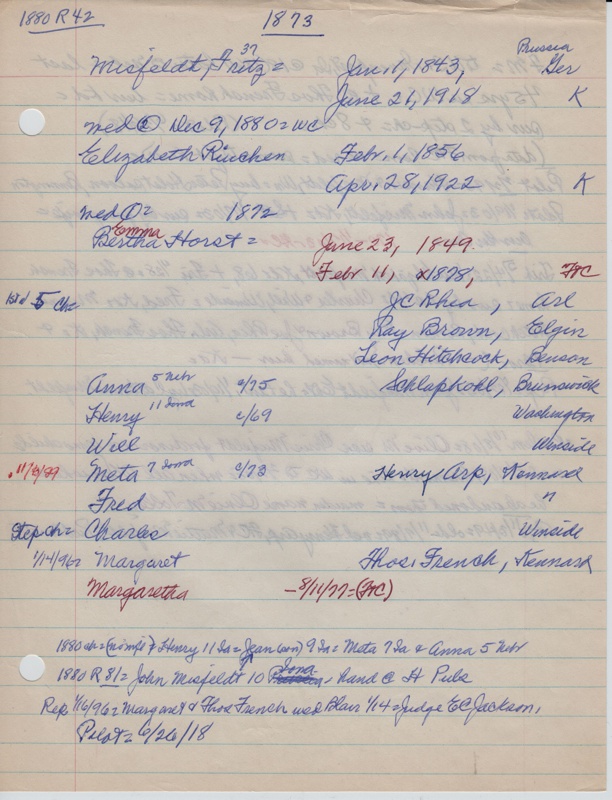 1880 R 42
1873
Prussia
37
Misfeldt, Fritz = Jan. 1, 1843, Ger
June 21, 1918 K
wed ② Dec 9, 1880 = WC
Elizabeth Riuchen Febr. 1, 1856
Apr. 28, 1922 K
wed ① = 1872
Emma
Bertha Horst = June 23, 1849.
Febr 11, 1878, FTC
5 Ch = J C Rhea, Arl
Ray Brown, Elgin
Leon Hitchcock, Benson
Anna 5 Nebr c/75 Schlapkohl, Brunswick
Henry 11 Iowa c/69 Washington
Will Winside
11/6/99 Meta 7 Iowa c/73 Henry Arp, Kennard
Fred "
Step ch = Charles Winside
1/14/96 = Margaret Thos. French, Kennard
Margaretha - 8/11/77 - (FTC)
1880 ch = Henry 11 Ia = Jean (son) 9 Ia = Meta 7 Ia & Anna 5 Nebr
1880 R 81 = John Misfeldt 10 Iowa hand @ H Puls
Rep. 1/16/96 = Margaret & Thos French wed Blair 1/14 = Judge E C Jackson.
Pilot = 6/26/18